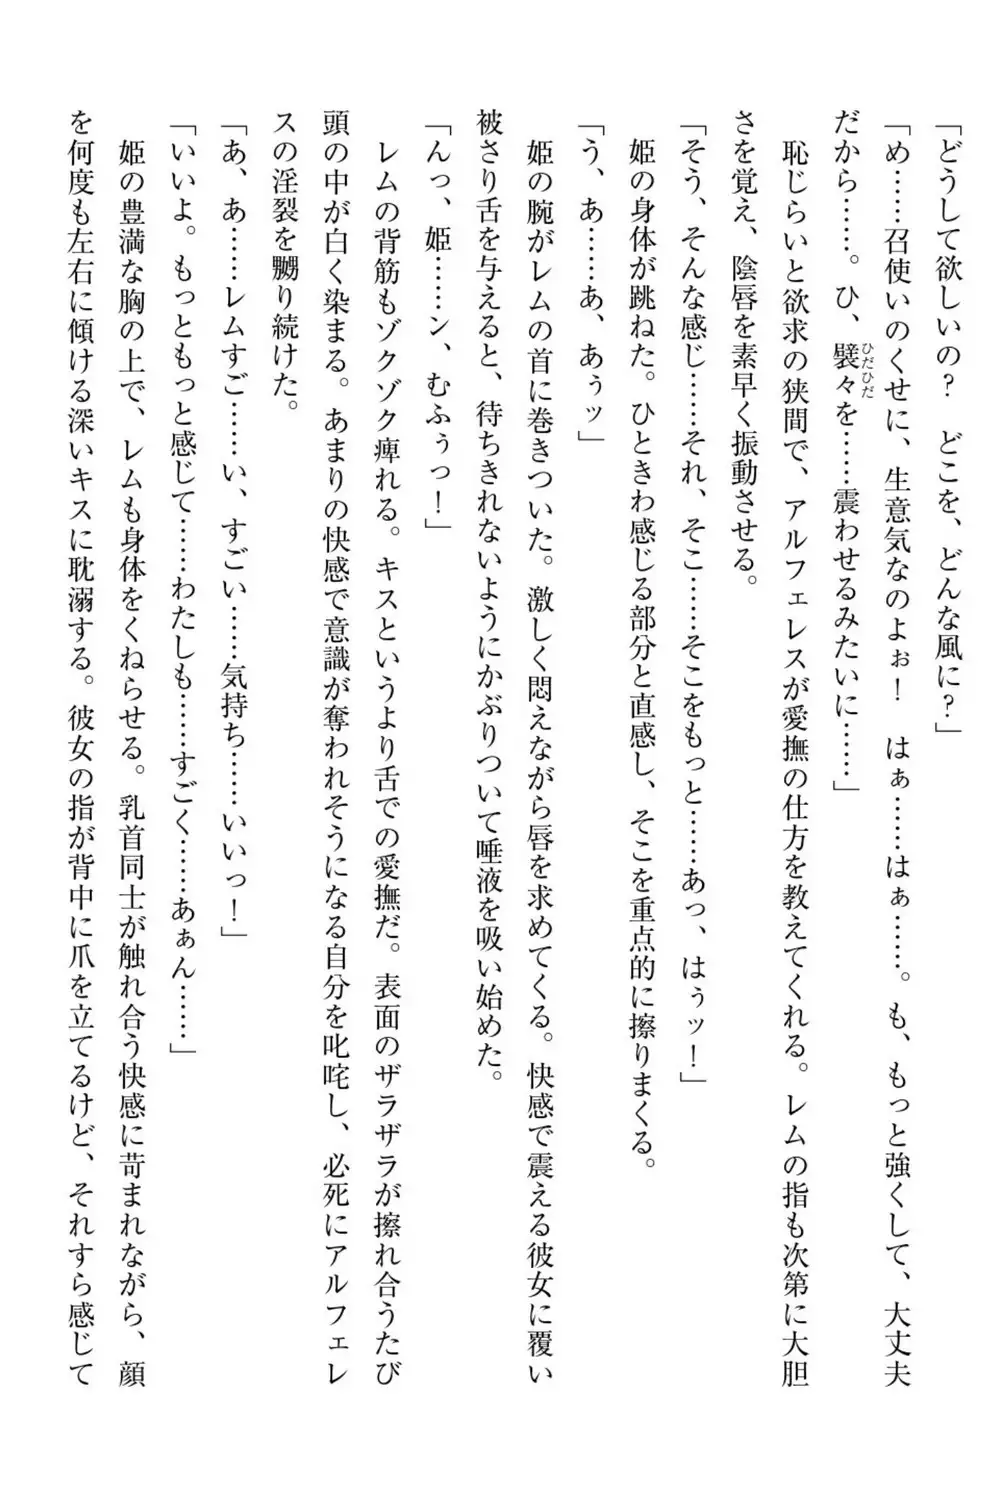 「どうして欲しいの？　どこを、どんな風に？」
「め……召使いのくせに、生意気なのよぉ！　はぁ……はぁ……。も、もっと強くして、大丈夫
だから……。ひ、襞々を……震わせるみたいに……」
ひだひだ
　恥じらいと欲求の狭間で、アルフェレスが愛撫の仕方を教えてくれる。レムの指も次第に大胆
さを覚え、陰唇を素早く振動させる。
「そう、そんな感じ……それ、そこ……そこをもっと……あっ、はぅッ！」
　姫の身体が跳ねた。ひときわ感じる部分と直感し、そこを重点的に擦りまくる。
「う、あ……あ、あぅッ」
　姫の腕がレムの首に巻きついた。激しく悶えながら唇を求めてくる。快感で震える彼女に覆い
被さり舌を与えると、待ちきれないようにかぶりついて唾液を吸い始めた。
「んっ、姫……ン、むふぅっ！」
　レムの背筋もゾクゾク痺れる。キスというより舌での愛撫だ。表面のザラザラが擦れ合うたび
頭の中が白く染まる。あまりの快感で意識が奪われそうになる自分を叱咤し、必死にアルフェレ
スの淫裂を嬲り続けた。
「あ、あ……レムすご……い、すごい……気持ち……いいっ！」
「いいよ。もっともっと感じて……わたしも……すごく……あぁん……」
　姫の豊満な胸の上で、レムも身体をくねらせる。乳首同士が触れ合う快感に苛まれながら、顔
を何度も左右に傾ける深いキスに耽溺する。彼女の指が背中に爪を立てるけど、それすら感じて